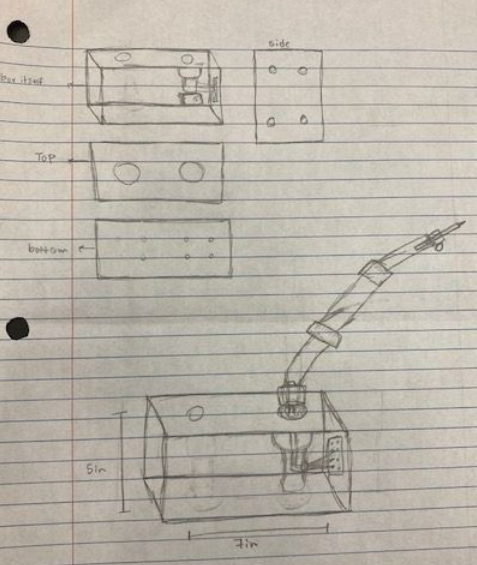 side
box itself
Top
bottom
5in
7in